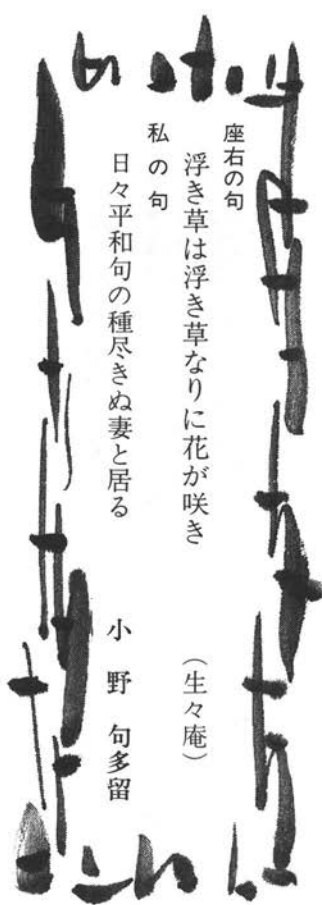 座右の句
浮き草は浮き草なりに花が咲き
（生々庵）
私の句
日々平和句の種尽きぬ妻と居る
小野句多留